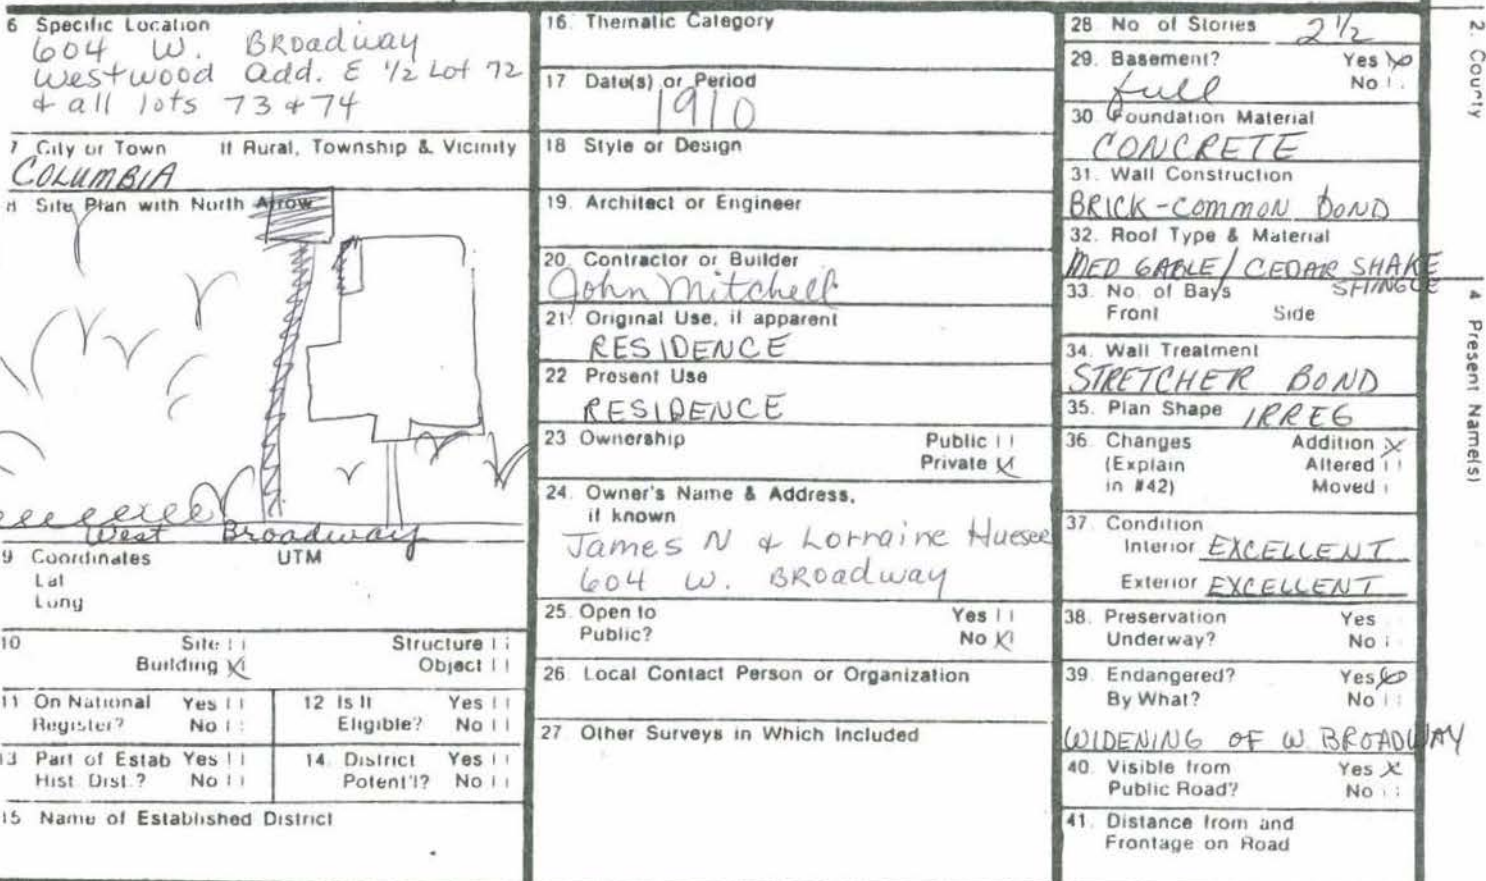 6 Specific Location
604 W. Broadway
Westwood Add. E 1/2 Lot 72
& all lots 73 & 74
7 City or Town If Rural, Township & Vicinity
COLUMBIA
8 Site Plan with North Arrow
West Broadway
9 Coordinates UTM
Lat
Long
10 Site Structure
Building X Object
11 On National Yes
Register? No
12 Is It Yes
Eligible? No
13 Part of Estab Yes
Hist. Dist.? No
14. District Yes
Potent'l? No
15 Name of Established District
16. Thematic Category
17 Date(s) or Period
1910
18 Style or Design
19. Architect or Engineer
20. Contractor or Builder
John Mitchell
21. Original Use, if apparent
RESIDENCE
22 Present Use
RESIDENCE
23 Ownership Public
Private X
24. Owner's Name & Address,
if known
James N & Lorraine Huesee
604 W. BROADWAY
25. Open to Yes
Public? No X
26. Local Contact Person or Organization
27 Other Surveys in Which Included
28. No of Stories 2 1/2
29. Basement? Yes X
No
full
30 Foundation Material
CONCRETE
31. Wall Construction
BRICK-COMMON BOND
32. Roof Type & Material
MED GABLE/ CEDAR SHAKE
SHINGLE
33. No. of Bays
Front Side
34. Wall Treatment
STRETCHER BOND
35. Plan Shape IRREG
36. Changes Addition X
(Explain Altered
in #42) Moved
37. Condition
Interior EXCELLENT
Exterior EXCELLENT
38. Preservation Yes
Underway? No
39. Endangered? Yes X
By What? No
WIDENING OF W. BROADWAY
40. Visible from Yes X
Public Road? No
41. Distance from and
Frontage on Road
2. County
4 Present Name(s)